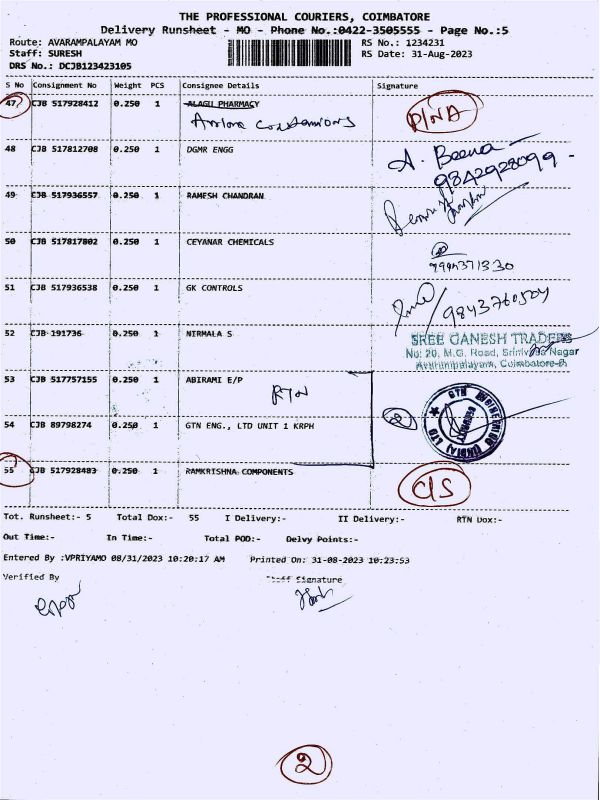 THE PROFESSIONAL COURIERS, COIMBATORE
Delivery Runsheet - MO - Phone No.:0422-3505555 - Page No.:5
Route: AVARAMPALAYAM MO RS No.: 1234231
Staff: SURESH RS Date: 31-Aug-2023
DRS No.: DCJB123423105
S No Consignment No Weight PCS Consignee Details Signature
47 CJB 517928412 0.250 1 ALAGU PHARMACY D/NA
48 CJB 517812708 0.250 1 DGMR ENGG A. Beena
9842928099
49 CJB 517936557 0.250 1 RAMESH CHANDRAN
50 CJB 517817802 0.250 1 CEYANAR CHEMICALS
51 CJB 517936538 0.250 1 GK CONTROLS
9843760504
52 CJB 191736 0.250 1 NIRMALA S SREE GANESH TRADERS
No: 20, M.G. Road, Srinivasa Nagar
Avarampalayam, Coimbatore-
53 CJB 517757155 0.250 1 ABIRAMI E/P
RTN
54 CJB 89798274 0.250 1 GTN ENG., LTD UNIT 1 KRPH
GTN ENGINEERING (INDIA) LTD
SECURITY
55 CJB 517928483 0.250 1 RAMKRISHNA COMPONENTS C/S
Tot. Runsheet:- 5 Total Dox:- 55 I Delivery:- II Delivery:- RTN Dox:-
Out Time:- In Time:- Total POD:- Delvy Points:-
Entered By :VPRIYAMO 08/31/2023 10:20:17 AM Printed On: 31-08-2023 10:23:53
Verified By Staff Signature
2